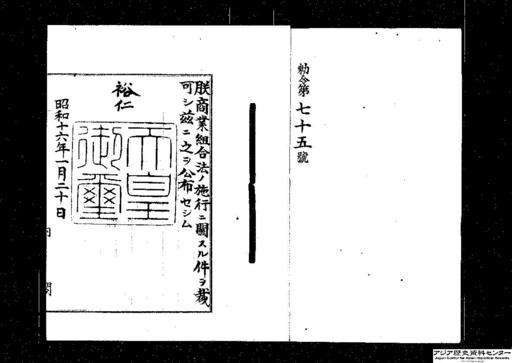 勅令第七十五號
朕商業組合法ノ施行ニ關スル件ヲ裁
可シ茲ニ之ヲ公布セシム
裕仁
天皇
御璽
昭和十六年一月二十日
内閣
アジア歴史資料センター
Japan Center for Asian Historical Records